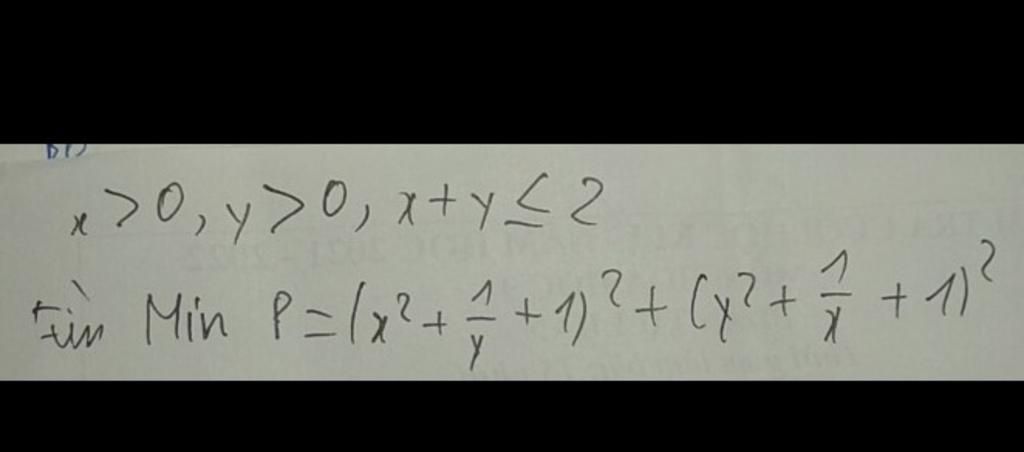 x > 0, y > 0, x + y ≤ 2
tìm Min P = (x² + 1/y + 1)² + (y² + 1/x + 1)²